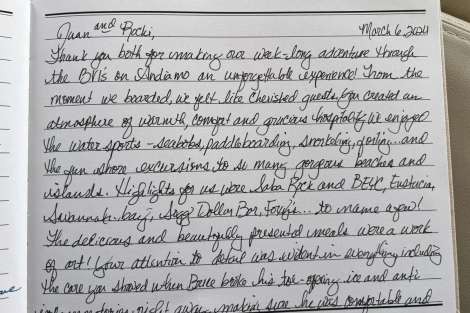 Juan and Rocki, March 6, 2024
Thank you both for making our week-long adventure through
the BVIs on Andiamo an unforgettable experience! From the
moment we boarded, we felt like cherished guests. You created an
atmosphere of warmth, comfort and gracious hospitality. We enjoyed
the water sports - seabobs, paddleboarding, snorkeling, foiling.. and
the fun ashore excursions, to so many gorgeous beaches and
islands. Highlights for us were Saba Rock and BEYC, Eustatia,
Savannah bay, Soggy Dollar Bar, Foxy's... to name a few!
The delicious and beautifully presented meals were a work
of art! Your attention to detail was evident in everything including
the care you showed when Bruce broke his toe - ice and anti
right away - making sure he was comfortable and